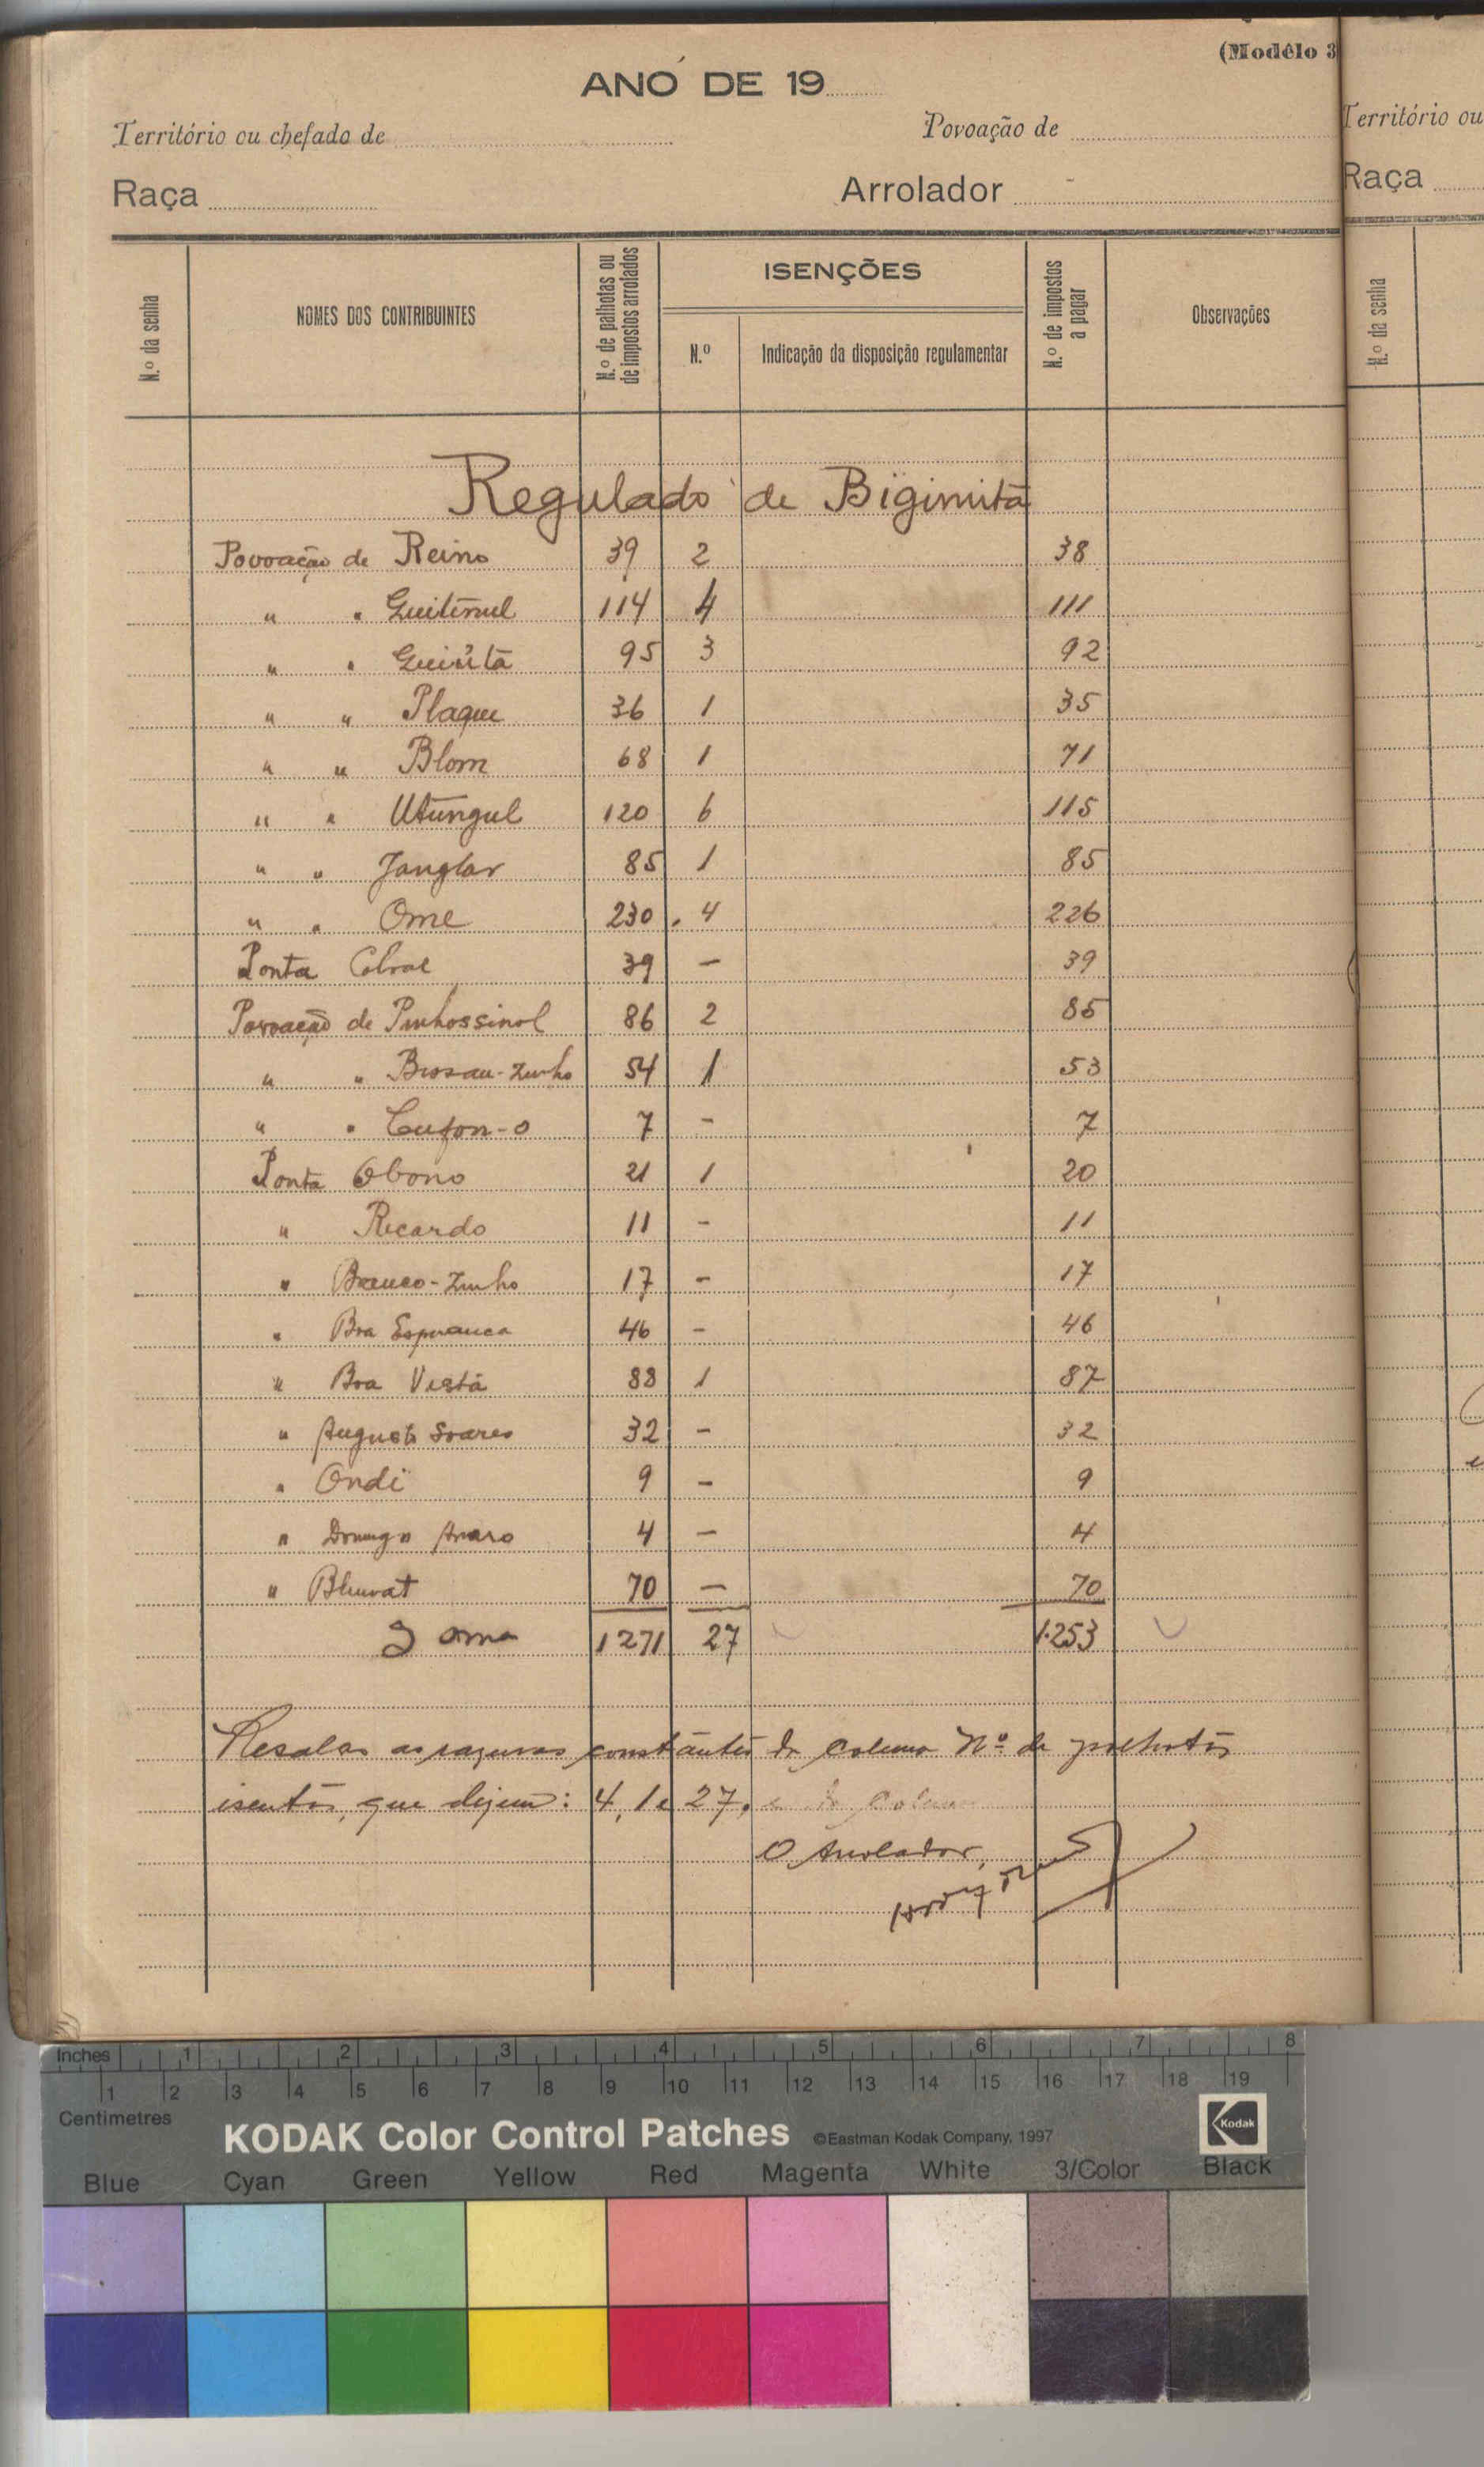 (Modêlo 3
ANO DE 19
Território ou chefado de Povoação de
Raça Arrolador
N.º da senha
NOMES DOS CONTRIBUINTES
N.º de palhotas ou de impostos arrolados
ISENÇÕES
N.º
Indicação da disposição regulamentar
N.º de impostos a pagar
Observações
Regulado de Bigimita
Povoação de Reino 39 2 38
" " Guitimul 114 4 111
" " 95 3 92
" " Plaque 36 1 35
" " Blom 68 1 71
" " Utungul 120 6 115
" " Janglar 85 1 85
" " Ome 230 . 4 226
Ponta Cabral 39 – 39
Povoação de 86 2 85
" " 54 1 53
" " Cufon-o 7 - 7
Ponta Obono 21 1 20
" Ricardo 11 - 11
" Branco-Zinho 17 – 17
" Boa Esperanca 46 – 46
" Boa Vista 88 1 87
" Augusto Soares 32 – 32
" Ondi 9 – 9
" Domingos 4 – 4
" 70 – 70
Soma 1271 27 1.253
Resalvo as rasuras constantes da coluna Nº de palhotas
isentas, que dizem: 4, 1 e 27, e da coluna
O Arrolador,
Território ou
Raça
N.º da senha
Inches 1 2 3 4 5 6 7 8
1 2 3 4 5 6 7 8 9 10 11 12 13 14 15 16 17 18 19
Centimetres
KODAK Color Control Patches ©Eastman Kodak Company, 1997 Kodak
Blue Cyan Green Yellow Red Magenta White 3/Color Black